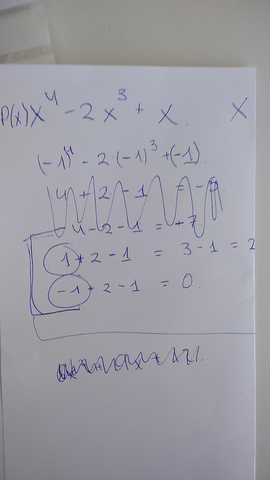 P(x) x⁴ - 2x³ + x. x
(-1)⁴ - 2(-1)³ + (-1).
4 - 2 - 1 = + 7
1 + 2 - 1 = 3 - 1 = 2
-1 + 2 - 1 = 0.